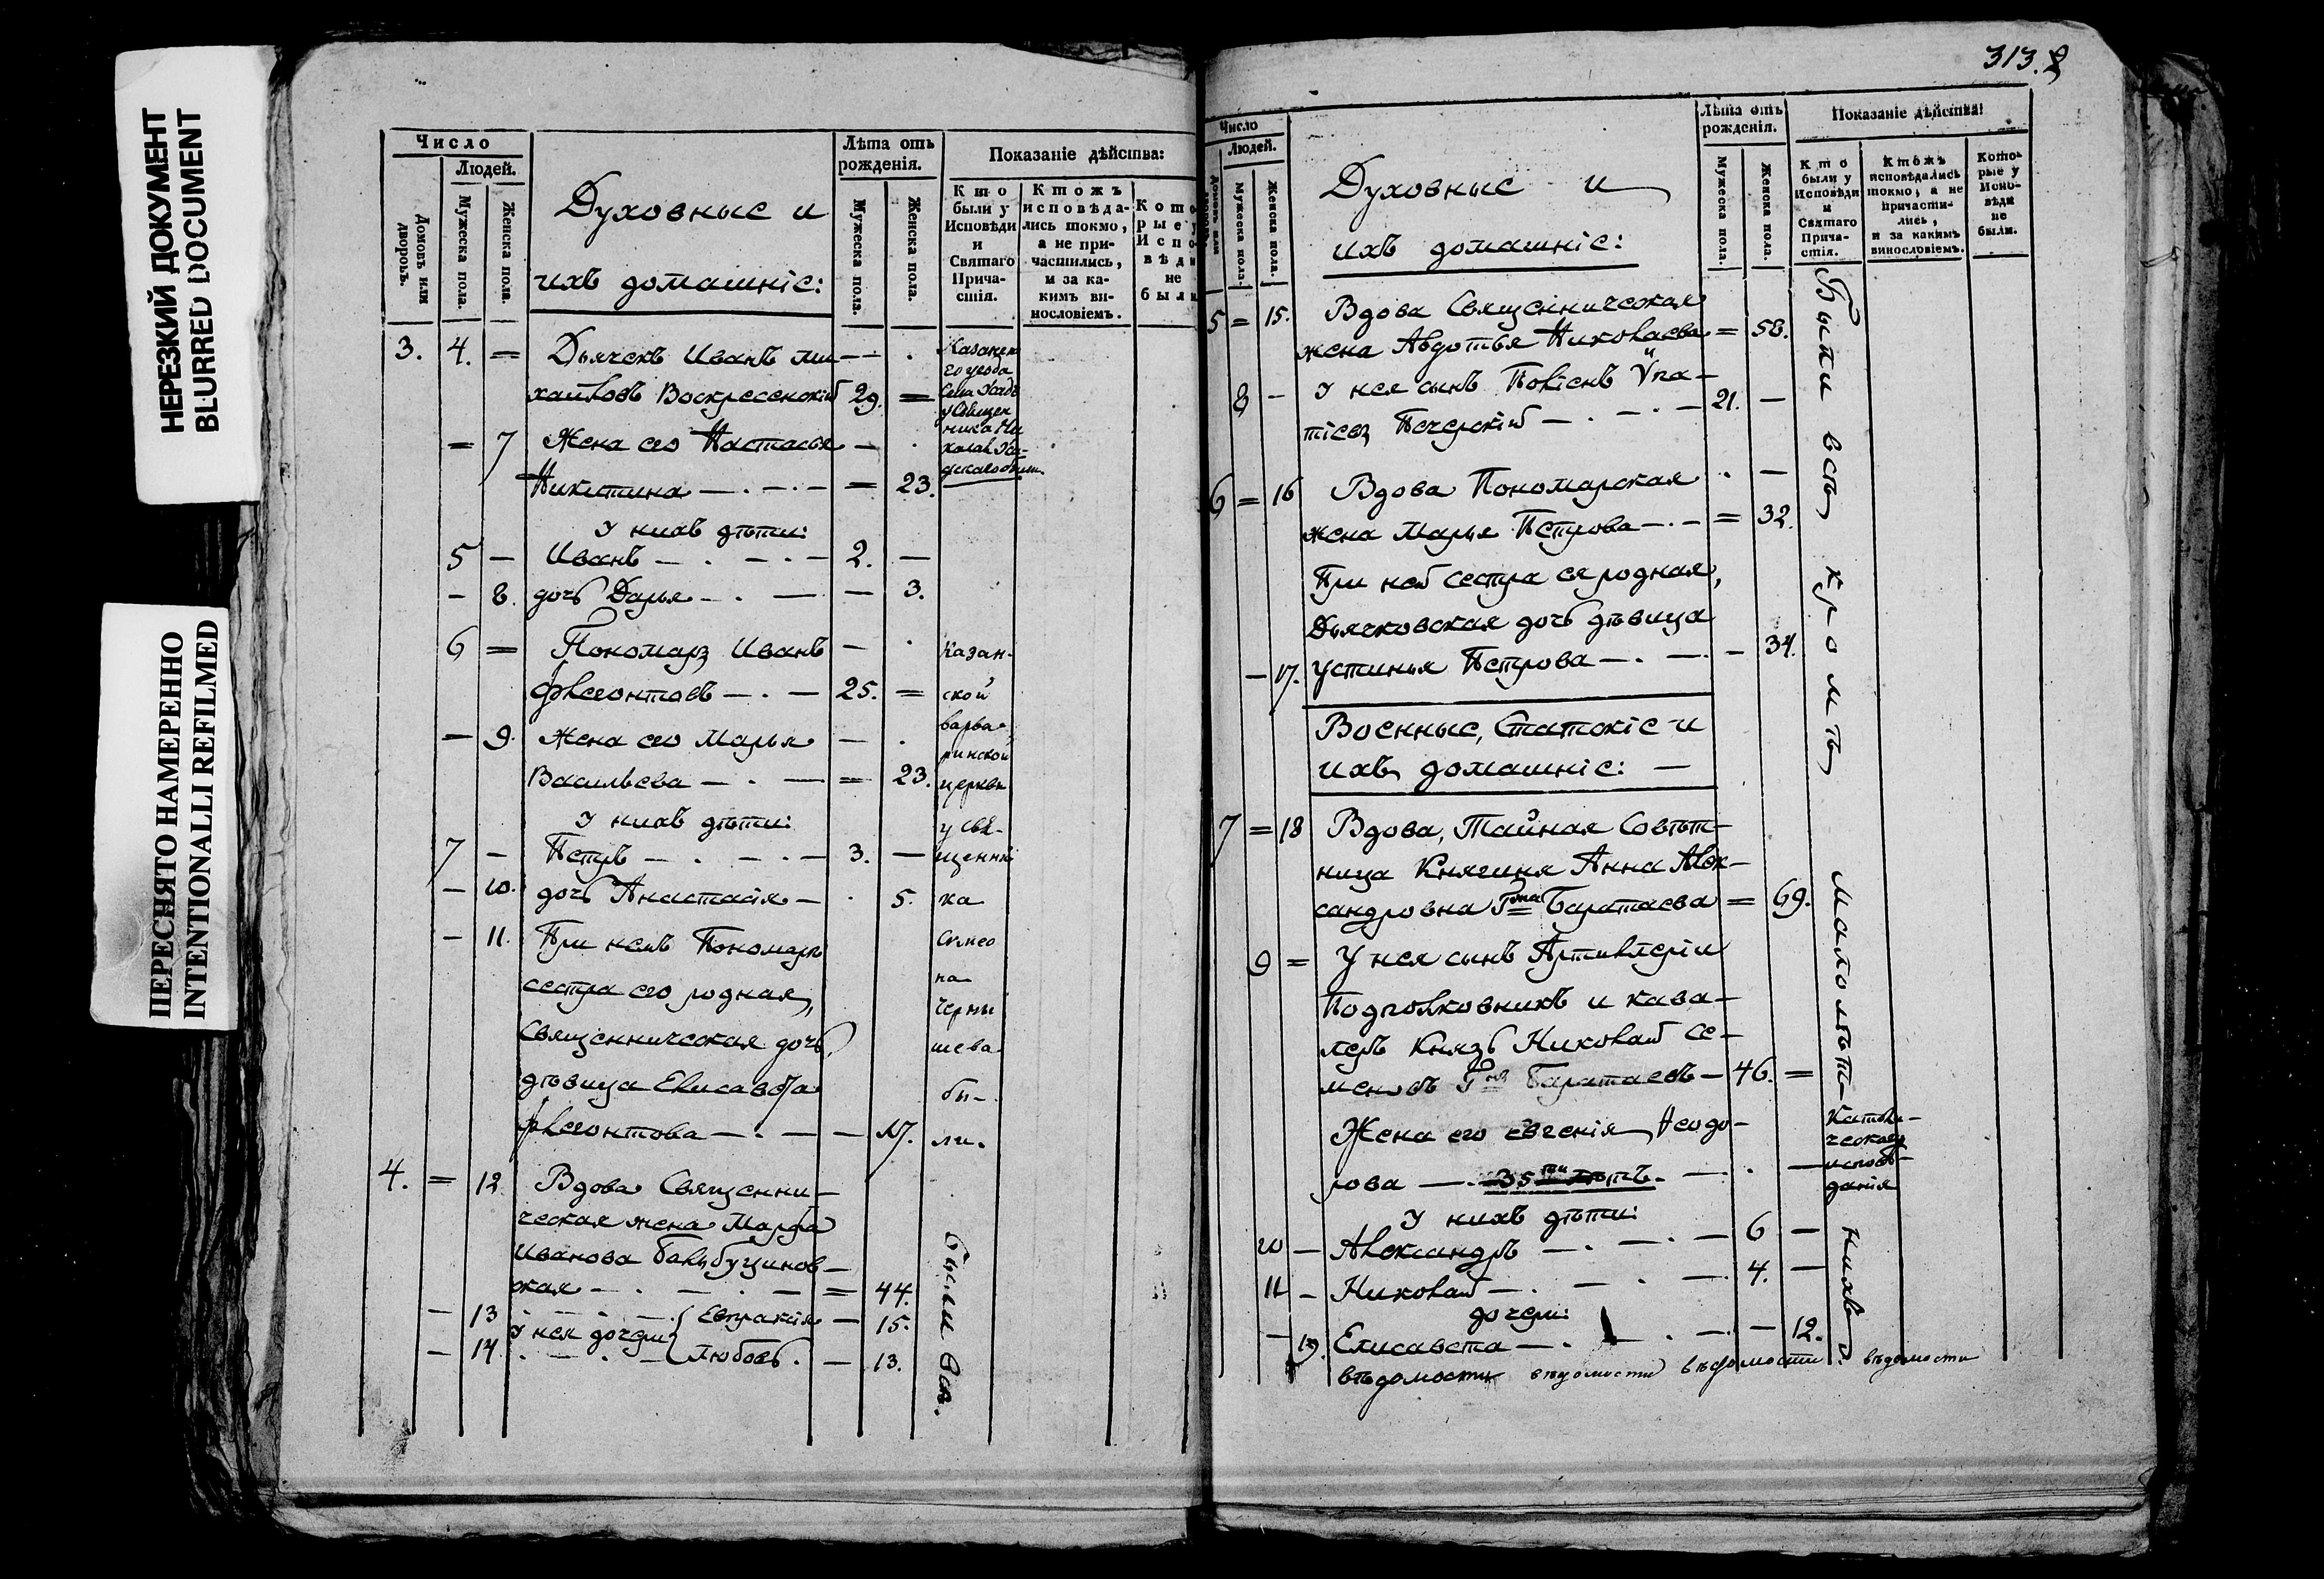 НЕРЕЗКИЙ ДОКУМЕНТ
BLURRED DOCUMENT
ПЕРЕСНЯТО НАМЕРЕННО
INTENTIONALLI REFILMED
Число
Людей.
Домовъ или дворовъ.
Мужеска пола.
Женска пола.
Духовные и
ихъ домашніе:
Лѣта отъ рожденія.
Мужеска пола.
Женска пола.
Показаніе дѣйства:
Кто были у Исповѣди и Святаго Причастія.
Ктожъ исповѣдались токмо, а не причастились, и за какимъ винословіемъ.
Которые у Исповѣди не были
3. 4. = Дьячекъ Иванъ Ми— —
хайловъ Воскресенскій 29. =
= 7 Жена его Настасья —
Никитина — . — . — = 23.
У нихъ дѣти:
5 — Иванъ — . — . — 2. —
— 8. дочь Дарья — . — — 3.
6 = Пономарь Иванъ —
Флегонтовъ — . — 25. =
— 9. Жена его Марья —
Васильева — . — = 23.
У нихъ дѣти:
7 — Петръ — . — . — 3. —
— 10. дочь Анастасія — . 5.
— 11. При немъ Пономарѣ
сестра его родная,
Священническая дочь,
дѣвица Елисавета
Флегонтова — . — — 17.
Казан-
ской
Варва-
ринской
церкви
у свя-
щенни
ка
Симео
на
Черны
шева
бы-
ли.
4. = 12 Вдова Священни—
ческая жена Марфа
Иванова
ская — . — . — = 44.
— 13 Евпраксія — 15.
У нея дочери
— 14 Любовь. — 13.
Были всѣ.
313.
Число
Людей.
Мужеска пола.
Женска пола.
Духовные и
ихъ домашніе:
Лѣта отъ рожденія.
Мужеска пола.
Женска пола.
Показаніе дѣйства:
Кто были у Исповѣди и Святаго Причастія.
Ктожъ исповѣдались токмо, а не причастились, и за какимъ винословіемъ.
Которые у Исповѣди не были.
5 = 15. Вдова Священническая
жена Авдотья Николаева = 58.
8 — У нея сынъ Ипа—
тіевъ Печерскій — . — . — 21. —
6 = 16 Вдова Пономарская . —
жена Марья Петрова — . — = 32.
При ней сестра ея родная,
Дьячковская дочь дѣвица
— 17. Устинья Петрова — . — . — 34.
Военные, Статскіе и
ихъ домашніе: —
7 = 18 Вдова, Тайная Совѣт—
ница Княгиня Анна Алек—
сандровна Баратаева = 69.
9 = У нея сынъ Артиллеріи
Подполковникъ и кава—
леръ Князь Николай Се—
меновъ Баратаевъ — 46. =
Жена его Евгенія Ѳеодо—
рова — . 35ти лѣтъ. — . —
Католи-
ческаго
исповѣ-
данія
У нихъ дѣти:
10 — Александръ — . — . — 6 —
11 — Николай — . — . — 4. —
дочери:
— 19. Елисавета — . — . — — 12.
Были всѣ кромѣ малолѣт— нихъ
вѣдомости вѣдомости вѣдомости вѣдомости